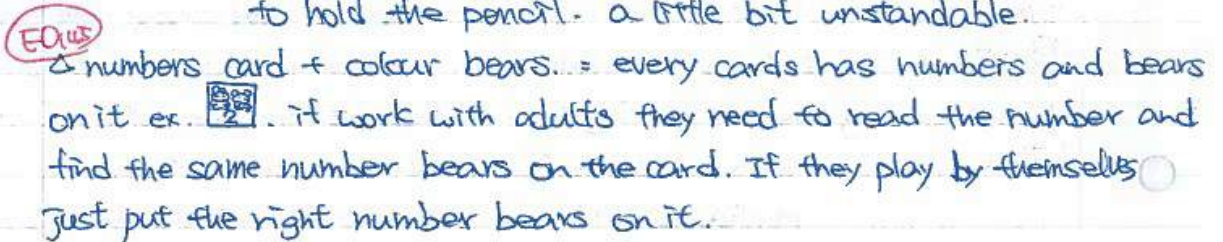 to hold the pencil. a little bit unstandable.
△ numbers card + colour bears. = every cards has numbers and bears
on it ex. 2. if work with adults they need to read the number and
find the same number bears on the card. If they play by themselvs
Just put the right number bears on it.